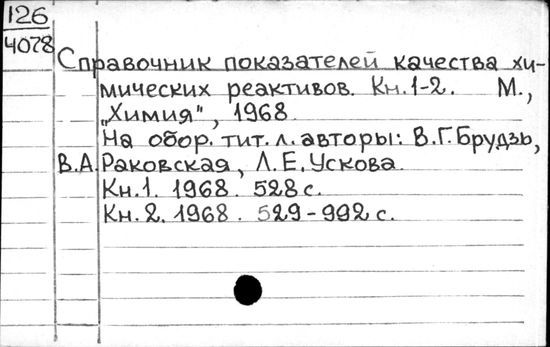 126
4078
Справочник показателей качества хи-
мических реактивов. Кн.1-2. М.,
„Химия", 1968.
На обор. тит. л. авторы: В.Г.Брудзь,
В.А. Раковская, Л.Е.Ускова.
Кн.1. 1968. 528 с.
Кн.2. 1968. 529-992 с.